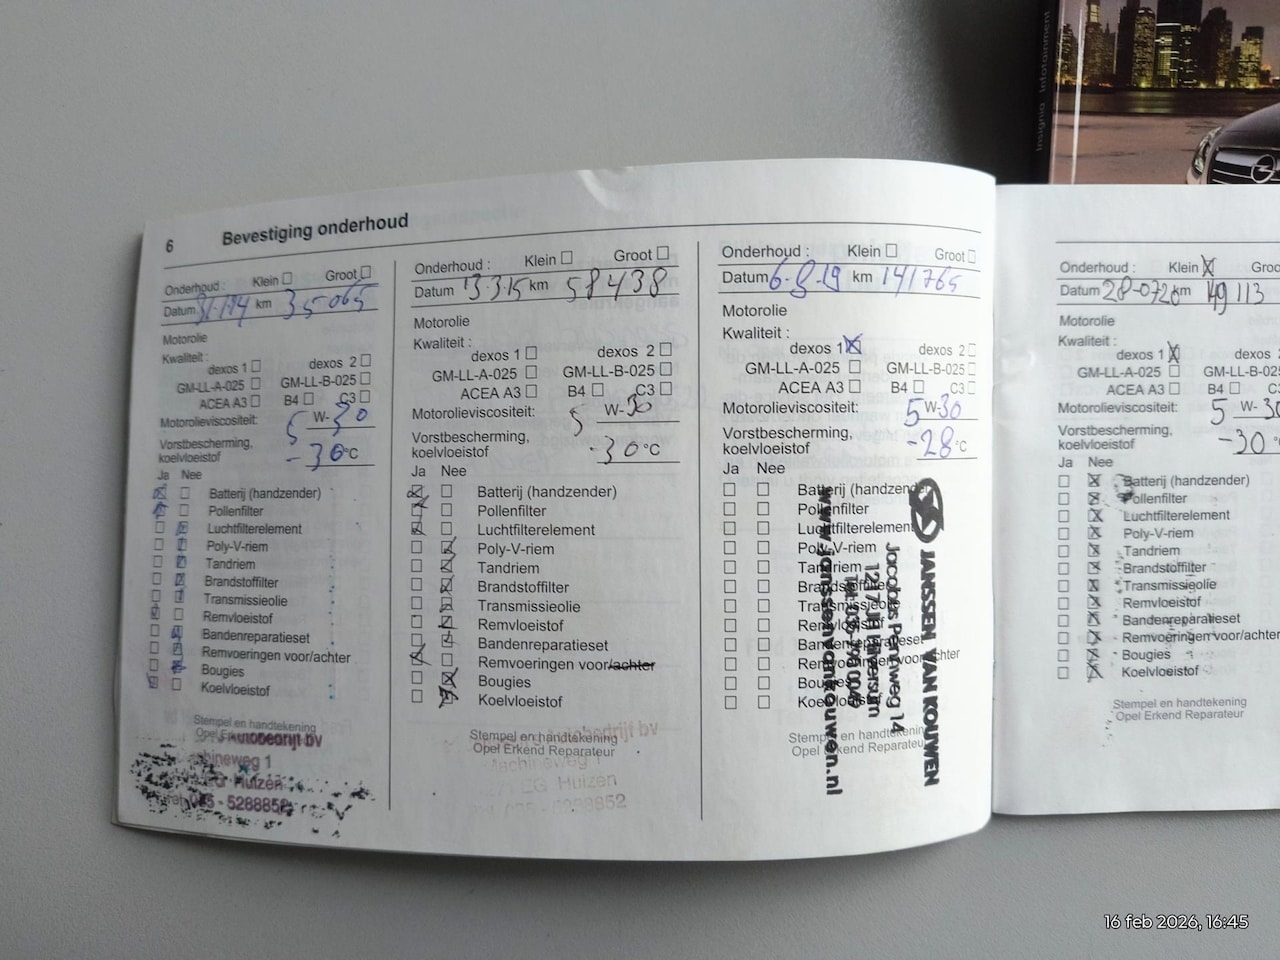 Insignia Infotainment
6 Bevestiging onderhoud
Onderhoud : Klein Groot
Datum km 35065
Motorolie
Kwaliteit :
dexos 1 dexos 2
GM-LL-A-025 GM-LL-B-025
ACEA A3 B4 C3
Motorolieviscositeit: 5 W-30
Vorstbescherming,
koelvloeistof -30°C
Ja Nee
Batterij (handzender)
Pollenfilter
Luchtfilterelement
Poly-V-riem
Tandriem
Brandstoffilter
Transmissieolie
Remvloeistof
Bandenreparatieset
Remvoeringen voor/achter
Bougies
Koelvloeistof
Stempel en handtekening
Opel Erkend Reparateur
Autobedrijf bv
chineweg 1
Huizen
5288852
Onderhoud : Klein Groot
Datum 13-3-15 km 58438
Motorolie
Kwaliteit :
dexos 1 dexos 2
GM-LL-A-025 GM-LL-B-025
ACEA A3 B4 C3
Motorolieviscositeit: 5 W-30
Vorstbescherming,
koelvloeistof -30°C
Ja Nee
Batterij (handzender)
Pollenfilter
Luchtfilterelement
Poly-V-riem
Tandriem
Brandstoffilter
Transmissieolie
Remvloeistof
Bandenreparatieset
Remvoeringen voor/achter
Bougies
Koelvloeistof
Stempel en handtekening
Opel Erkend Reparateur
Machineweg 1
Huizen
5288852
Onderhoud : Klein Groot
Datum 6-8-19 km 141765
Motorolie
Kwaliteit :
dexos 1 dexos 2
GM-LL-A-025 GM-LL-B-025
ACEA A3 B4 C3
Motorolieviscositeit: 5 W-30
Vorstbescherming,
koelvloeistof -28°C
Ja Nee
Batterij (handzender)
Pollenfilter
Luchtfilterelement
Poly-V-riem
Tandriem
Brandstoffilter
Transmissieolie
Remvloeistof
Bandenreparatieset
Remvoeringen voor/achter
Bougies
Koelvloeistof
Stempel en handtekening
Opel Erkend Reparateur
JANSSEN VAN KOUWEN
Jacobus Penweg 14
Hilversum
www.janssenvankouwen.nl
Onderhoud : Klein Groo
Datum 28-0720 km 149113
Motorolie
Kwaliteit :
dexos 1 dexos 2
GM-LL-A-025 GM-LL-B-025
ACEA A3 B4 C3
Motorolieviscositeit: 5 W-30
Vorstbescherming,
koelvloeistof -30°C
Ja Nee
Batterij (handzender)
Pollenfilter
Luchtfilterelement
Poly-V-riem
Tandriem
Brandstoffilter
Transmissieolie
Remvloeistof
Bandenreparatieset
Remvoeringen voor/achter
Bougies
Koelvloeistof
Stempel en handtekening
Opel Erkend Reparateur
16 feb 2026, 16:45